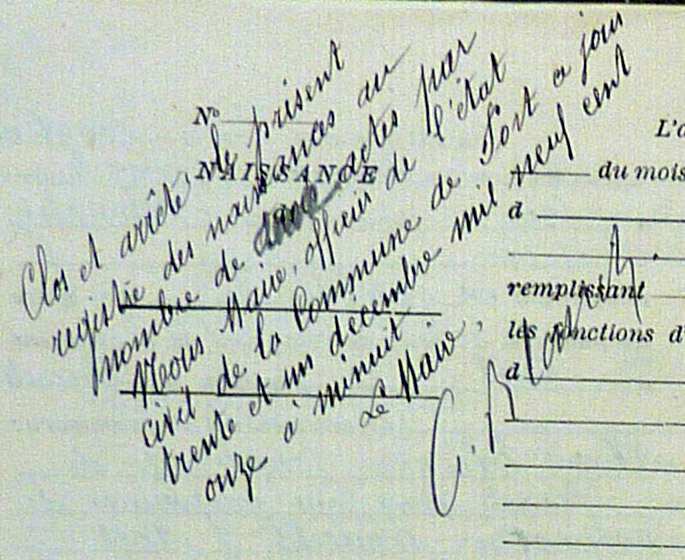 Clos et arrêté le présent
registre des naissances au
nombre de actes par
Nous Maire, officier de l'état
civil de la Commune de Port a jour
trente et un décembre mil neuf cent
onze à minuit
Le Maire,
N°
NAISSANCE
L'a
du mois
d
remplissant
les fonctions d
d